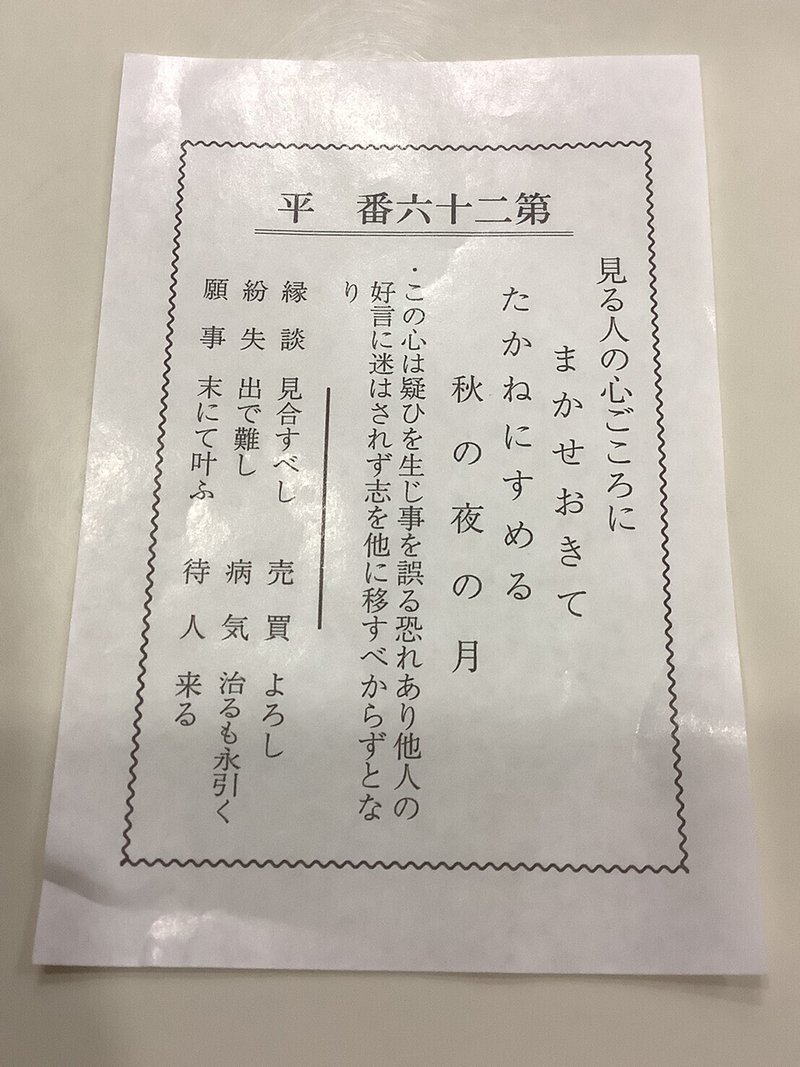 第二十六番　平
見る人の心ごころに
まかせおきて
たかねにすめる
秋の夜の月
・この心は疑ひを生じ事を誤る恐れあり他人の
好言に迷はされず志を他に移すべからずとな
り
縁談　見合すべし　売買　よろし
紛失　出で難し　病気　治るも永引く
願事　末にて叶ふ　待人　来る